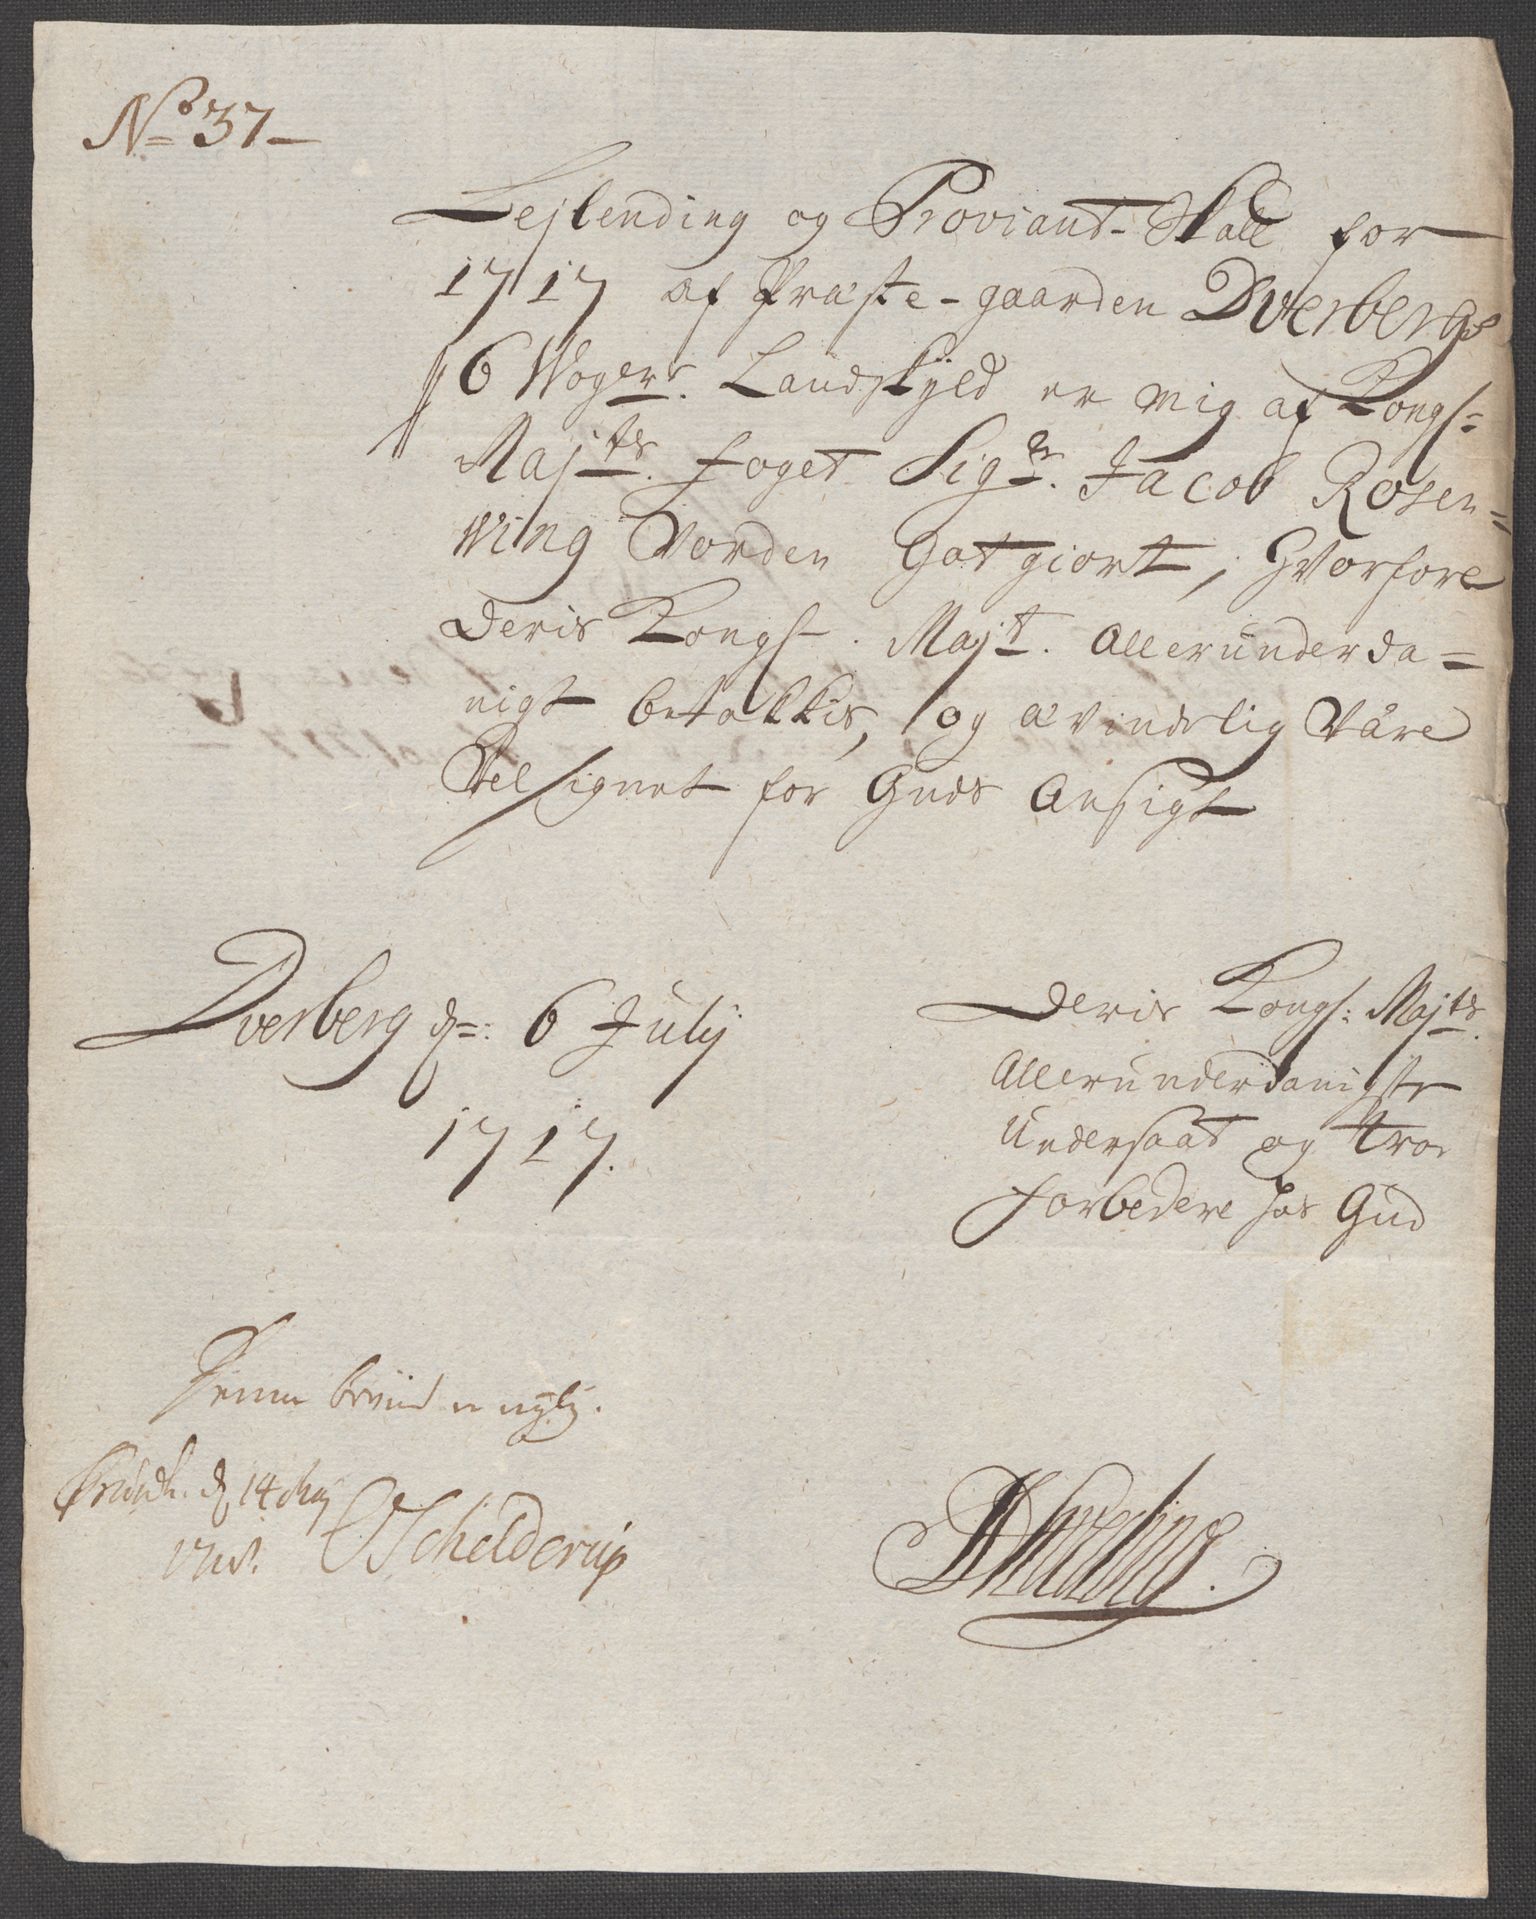 No 37
Lejlending og Proviant-Skatt for
1717 af Præste-gaarden Dverbergs
6 Woger. Landskyld er mig af Kongs=
Majts. foget Sigr. Jacob Rosen=
wing Vorden Gotgiort, Hvorfore
Deris Kongs. Majt. Allerunderda=
nigst betakkis, og ævindelig være
Velsignet for Guds Ansigt
Dverberg d: 6 Julij
1717.
Deris Kongs: Majts.
Allerunderdanigste
Undersaat og troe
forbedere hos Gud
Denne er rigtig.
d 14 Maj
Schelderup